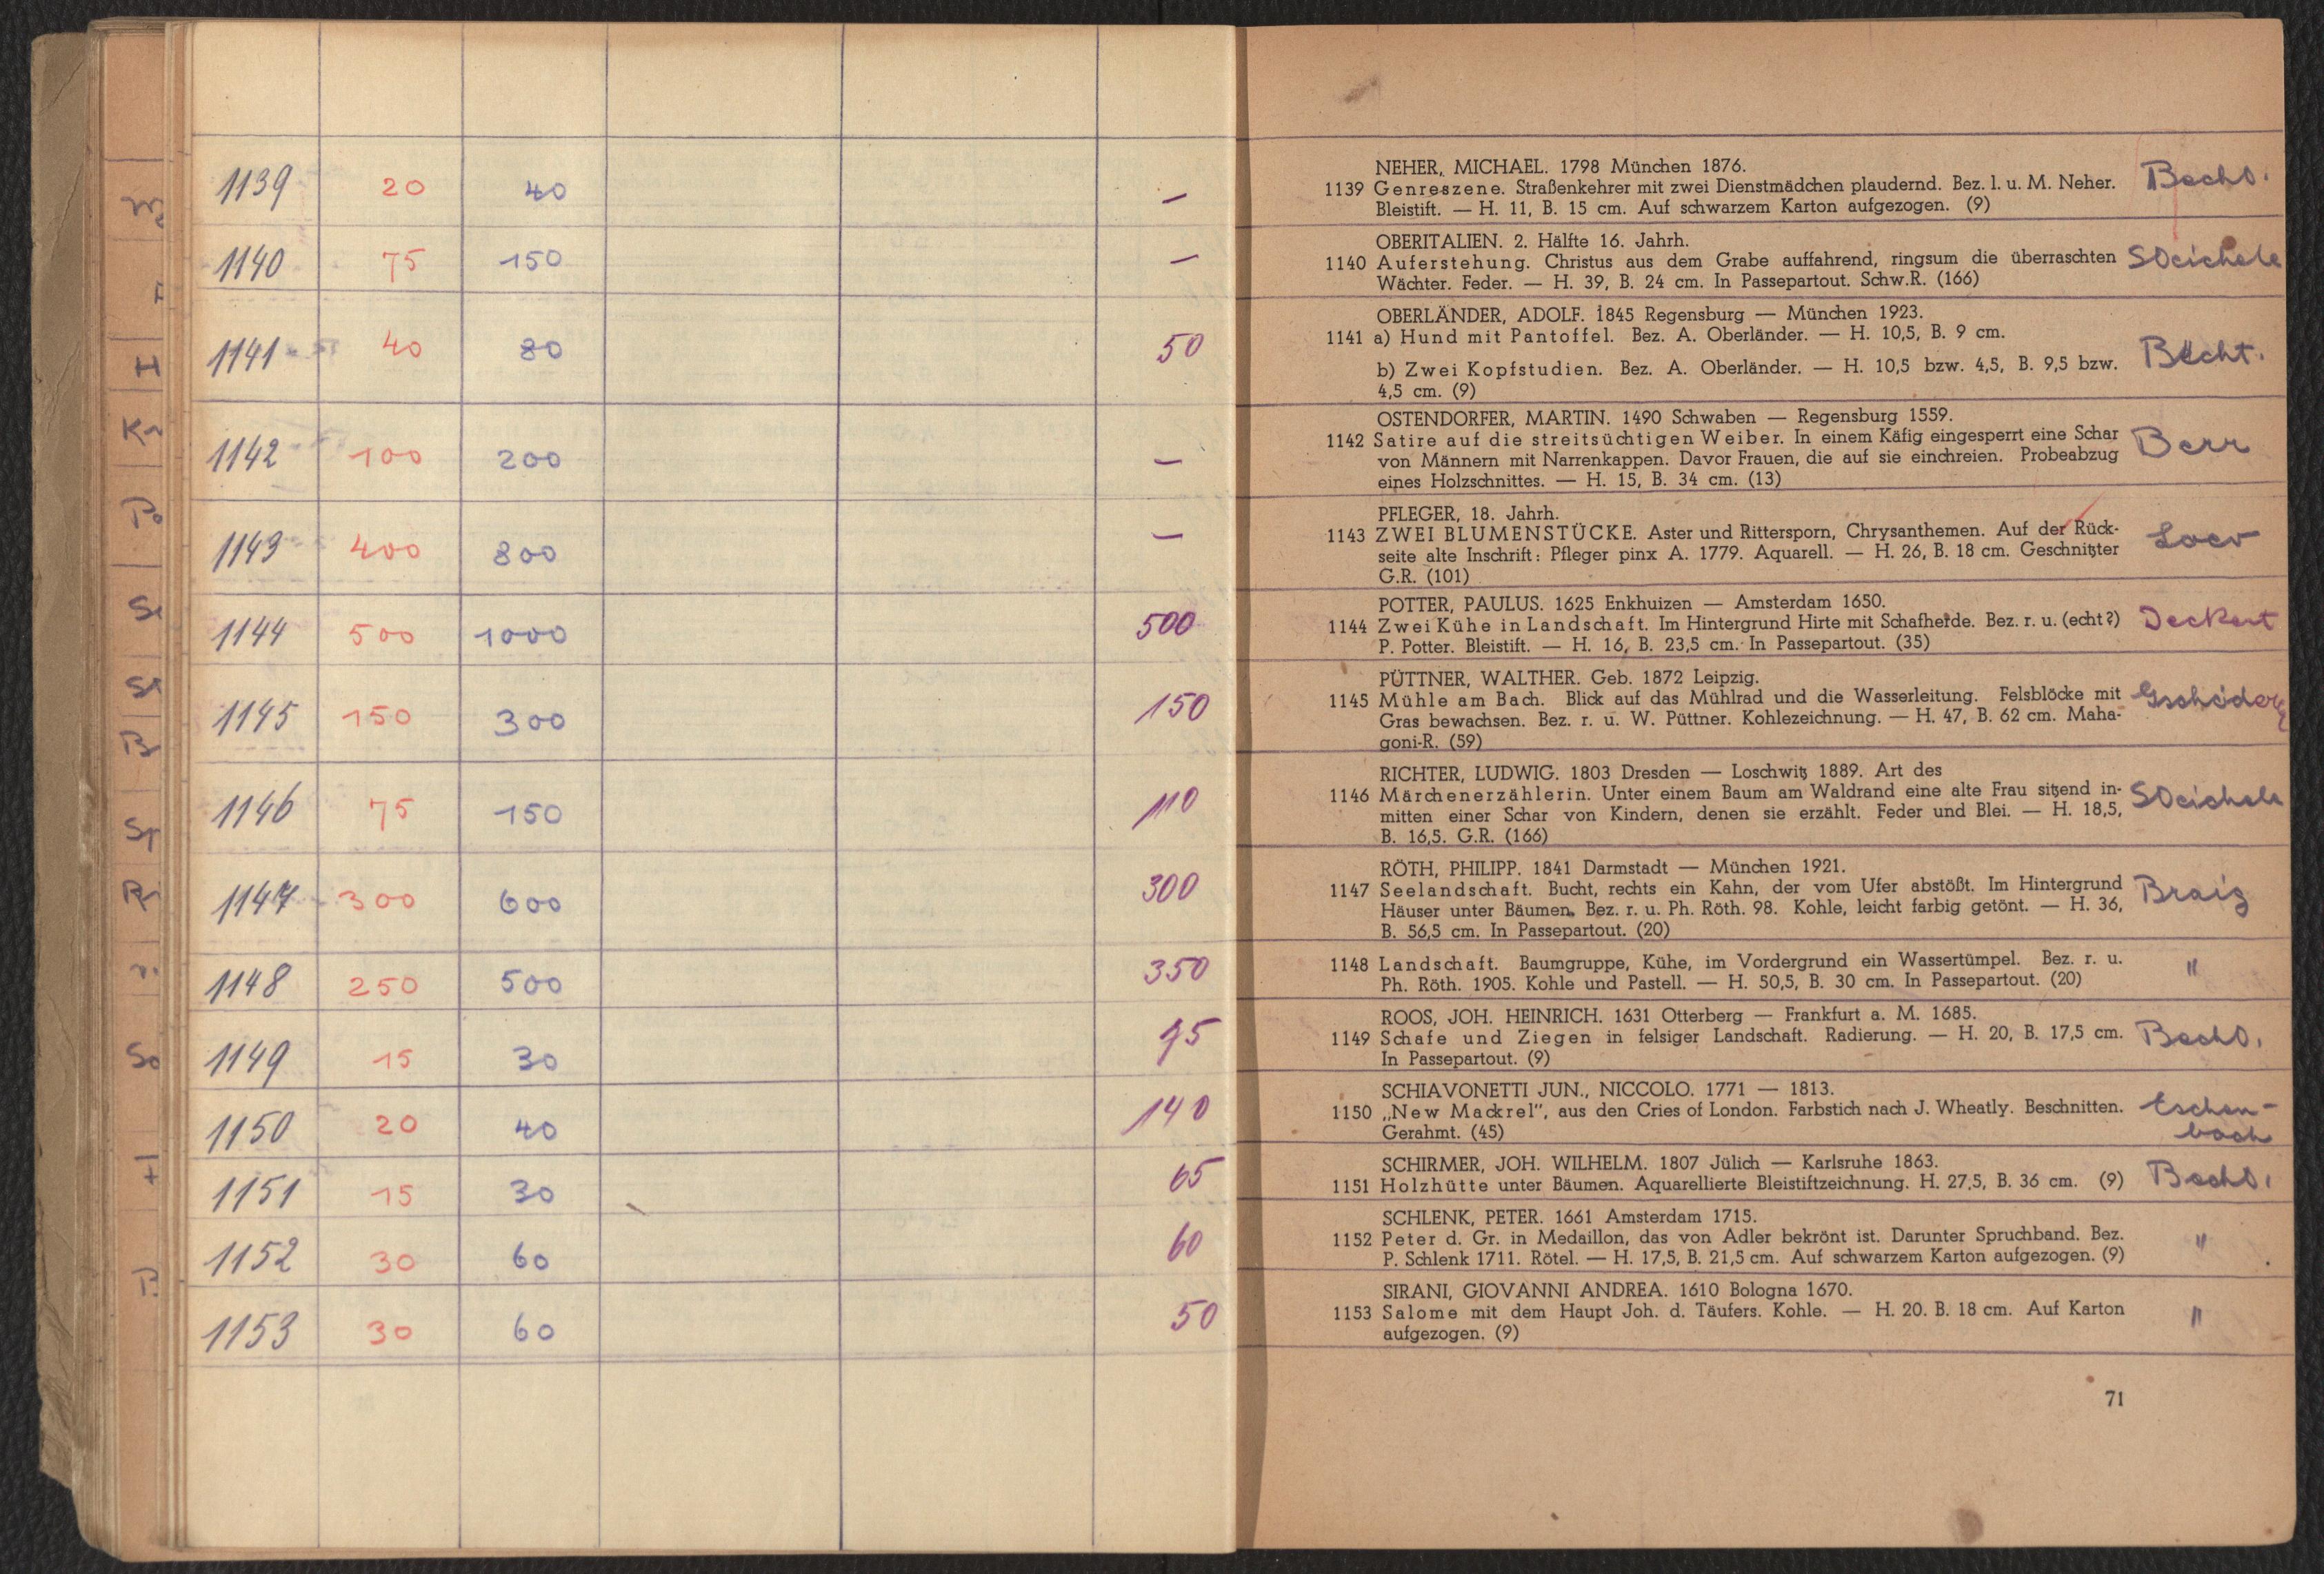 1139 20 40 —
1140 75 150 —
1141 40 80 50
1142 100 200 —
1143 400 800 —
1144 500 1000 500
1145 150 300 150
1146 75 150 110
1147 300 600 300
1148 250 500 350
1149 15 30
1150 20 40 140
1151 15 30 65
1152 30 60 60
1153 30 60 50
NEHER, MICHAEL. 1798 München 1876.
1139 Genreszene. Straßenkehrer mit zwei Dienstmädchen plaudernd. Bez. l. u. M. Neher.
Bleistift. — H. 11, B. 15 cm. Auf schwarzem Karton aufgezogen. (9)
OBERITALIEN. 2. Hälfte 16. Jahrh.
1140 Auferstehung. Christus aus dem Grabe auffahrend, ringsum die überraschten
Wächter. Feder. — H. 39, B. 24 cm. In Passepartout. Schw.R. (166)
OBERLÄNDER, ADOLF. 1845 Regensburg — München 1923.
1141 a) Hund mit Pantoffel. Bez. A. Oberländer. — H. 10,5, B. 9 cm.
Becht.
b) Zwei Kopfstudien. Bez. A. Oberländer. — H. 10,5 bzw. 4,5, B. 9,5 bzw.
4,5 cm. (9)
OSTENDORFER, MARTIN. 1490 Schwaben — Regensburg 1559.
1142 Satire auf die streitsüchtigen Weiber. In einem Käfig eingesperrt eine Schar Berr
von Männern mit Narrenkappen. Davor Frauen, die auf sie einchreien. Probeabzug
eines Holzschnittes. — H. 15, B. 34 cm. (13)
PFLEGER, 18. Jahrh.
1143 ZWEI BLUMENSTÜCKE. Aster und Rittersporn, Chrysanthemen. Auf der Rück-
seite alte Inschrift: Pfleger pinx A. 1779. Aquarell. — H. 26, B. 18 cm. Geschnitzter
G.R. (101)
POTTER, PAULUS. 1625 Enkhuizen — Amsterdam 1650.
1144 Zwei Kühe in Landschaft. Im Hintergrund Hirte mit Schafherde. Bez. r. u. (echt?) Deckert
P. Potter. Bleistift. — H. 16, B. 23,5 cm. In Passepartout. (35)
PÜTTNER, WALTHER. Geb. 1872 Leipzig.
1145 Mühle am Bach. Blick auf das Mühlrad und die Wasserleitung. Felsblöcke mit
Gras bewachsen. Bez. r. u. W. Püttner. Kohlezeichnung. — H. 47, B. 62 cm. Maha-
goni-R. (59)
RICHTER, LUDWIG. 1803 Dresden — Loschwitz 1889. Art des
1146 Märchenerzählerin. Unter einem Baum am Waldrand eine alte Frau sitzend in-
mitten einer Schar von Kindern, denen sie erzählt. Feder und Blei. — H. 18,5,
B. 16,5. G.R. (166)
RÖTH, PHILIPP. 1841 Darmstadt — München 1921.
1147 Seelandschaft. Bucht, rechts ein Kahn, der vom Ufer abstößt. Im Hintergrund Braig
Häuser unter Bäumen. Bez. r. u. Ph. Röth. 98. Kohle, leicht farbig getönt. — H. 36,
B. 56,5 cm. In Passepartout. (20)
1148 Landschaft. Baumgruppe, Kühe, im Vordergrund ein Wassertümpel. Bez. r. u. "
Ph. Röth. 1905. Kohle und Pastell. — H. 50,5, B. 30 cm. In Passepartout. (20)
ROOS, JOH. HEINRICH. 1631 Otterberg — Frankfurt a. M. 1685.
1149 Schafe und Ziegen in felsiger Landschaft. Radierung. — H. 20, B. 17,5 cm.
In Passepartout. (9)
SCHIAVONETTI JUN., NICCOLO. 1771 — 1813.
1150 „New Mackrel", aus den Cries of London. Farbstich nach J. Wheatly. Beschnitten. Eschen-
Gerahmt. (45) bach
SCHIRMER, JOH. WILHELM. 1807 Jülich — Karlsruhe 1863.
1151 Holzhütte unter Bäumen. Aquarellierte Bleistiftzeichnung. H. 27,5, B. 36 cm. (9)
SCHLENK, PETER. 1661 Amsterdam 1715.
1152 Peter d. Gr. in Medaillon, das von Adler bekrönt ist. Darunter Spruchband. Bez. "
P. Schlenk 1711. Rötel. — H. 17,5, B. 21,5 cm. Auf schwarzem Karton aufgezogen. (9)
SIRANI, GIOVANNI ANDREA. 1610 Bologna 1670.
1153 Salome mit dem Haupt Joh. d. Täufers. Kohle. — H. 20. B. 18 cm. Auf Karton "
aufgezogen. (9)
71